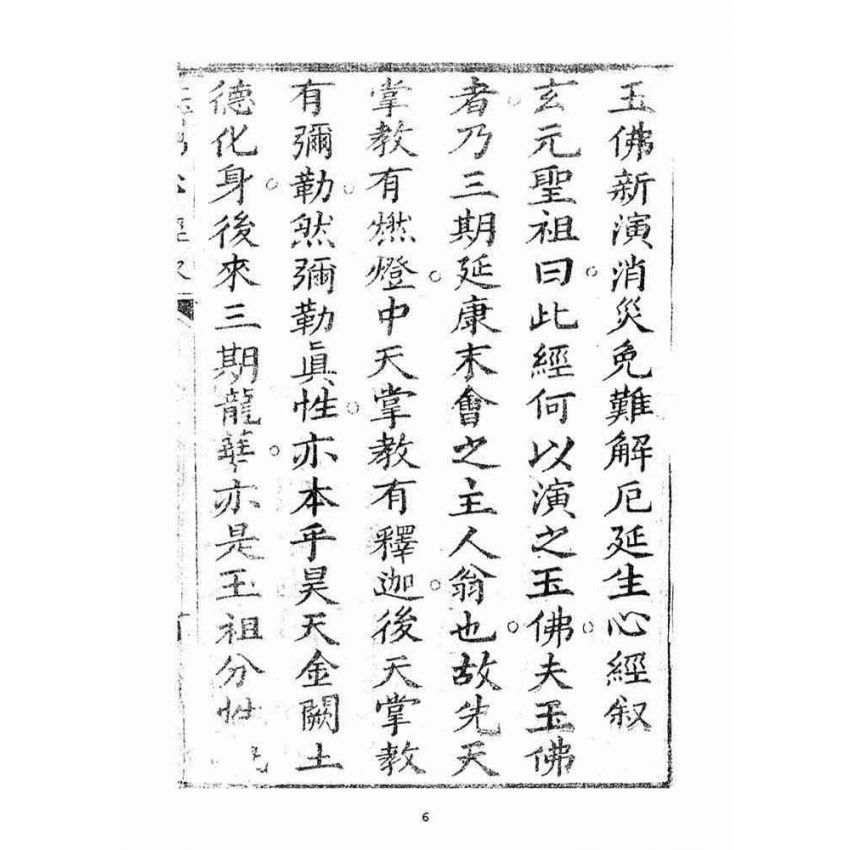 玉佛新演消災免難解厄延生心經叙
玄元聖祖曰此經何以演之玉佛夫玉佛
者乃三期延康末會之主人翁也故先天
掌教有燃燈中天掌教有釋迦後天掌教
有彌勒然彌勒眞性亦本乎昊天金闕玉
德化身後來三期龍華亦是玉祖分性
6